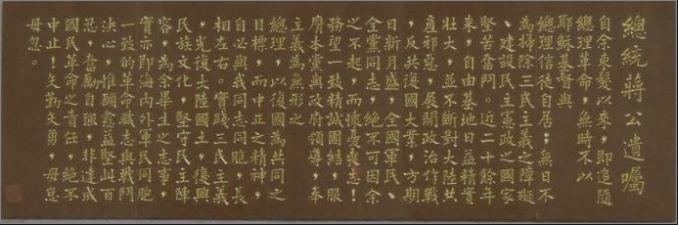 總統蔣公遺囑
自余束髮以來，即追隨
總理革命，無時不以
耶穌基督與
總理信徒自居，無日不
為掃除三民主義之障礙
、建設民主憲政之國家
堅苦奮鬥。近二十餘年
來，自由基地日益精實
壯大，並不斷對大陸共
產邪惡，展開政治作戰
，反共復國大業，方期
日新月盛，全國軍民、
全黨同志，絕不可因余
之不起，而懷憂喪志！
務望一致精誠團結，服
膺本黨與政府領導，奉
主義為無形之
總理，以復國為共同之
目標，而中正之精神，
自必與我同志同胞，長
相左右。實踐三民主義
，光復大陸國土，復興
民族文化，堅守民主陣
容，為余畢生之志事，
實亦即海內外軍民同胞
一致的革命職志與戰鬥
決心，惟願愈益堅此百
忍，奮勵自強，非達成
國民革命之責任，絕不
中止！矢勤矢勇，毋怠
毋忽。